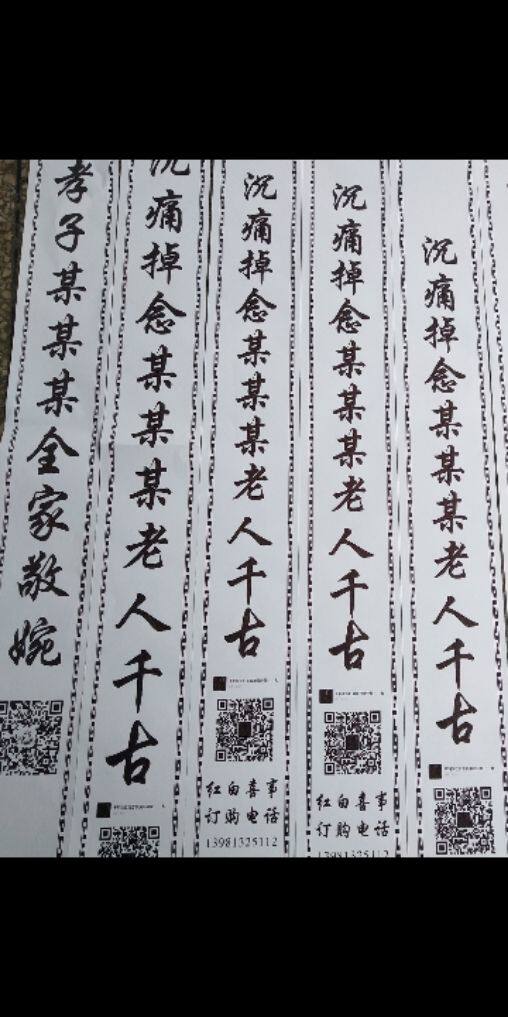 孝子某某某全家敬婉
沉痛掉念某某某老人千古
沉痛掉念某某某老人千古
红白喜事
订购电话
13981325112
沉痛掉念某某某老人千古
红白喜事
订购电话
13981325112
沉痛掉念某某某老人千古